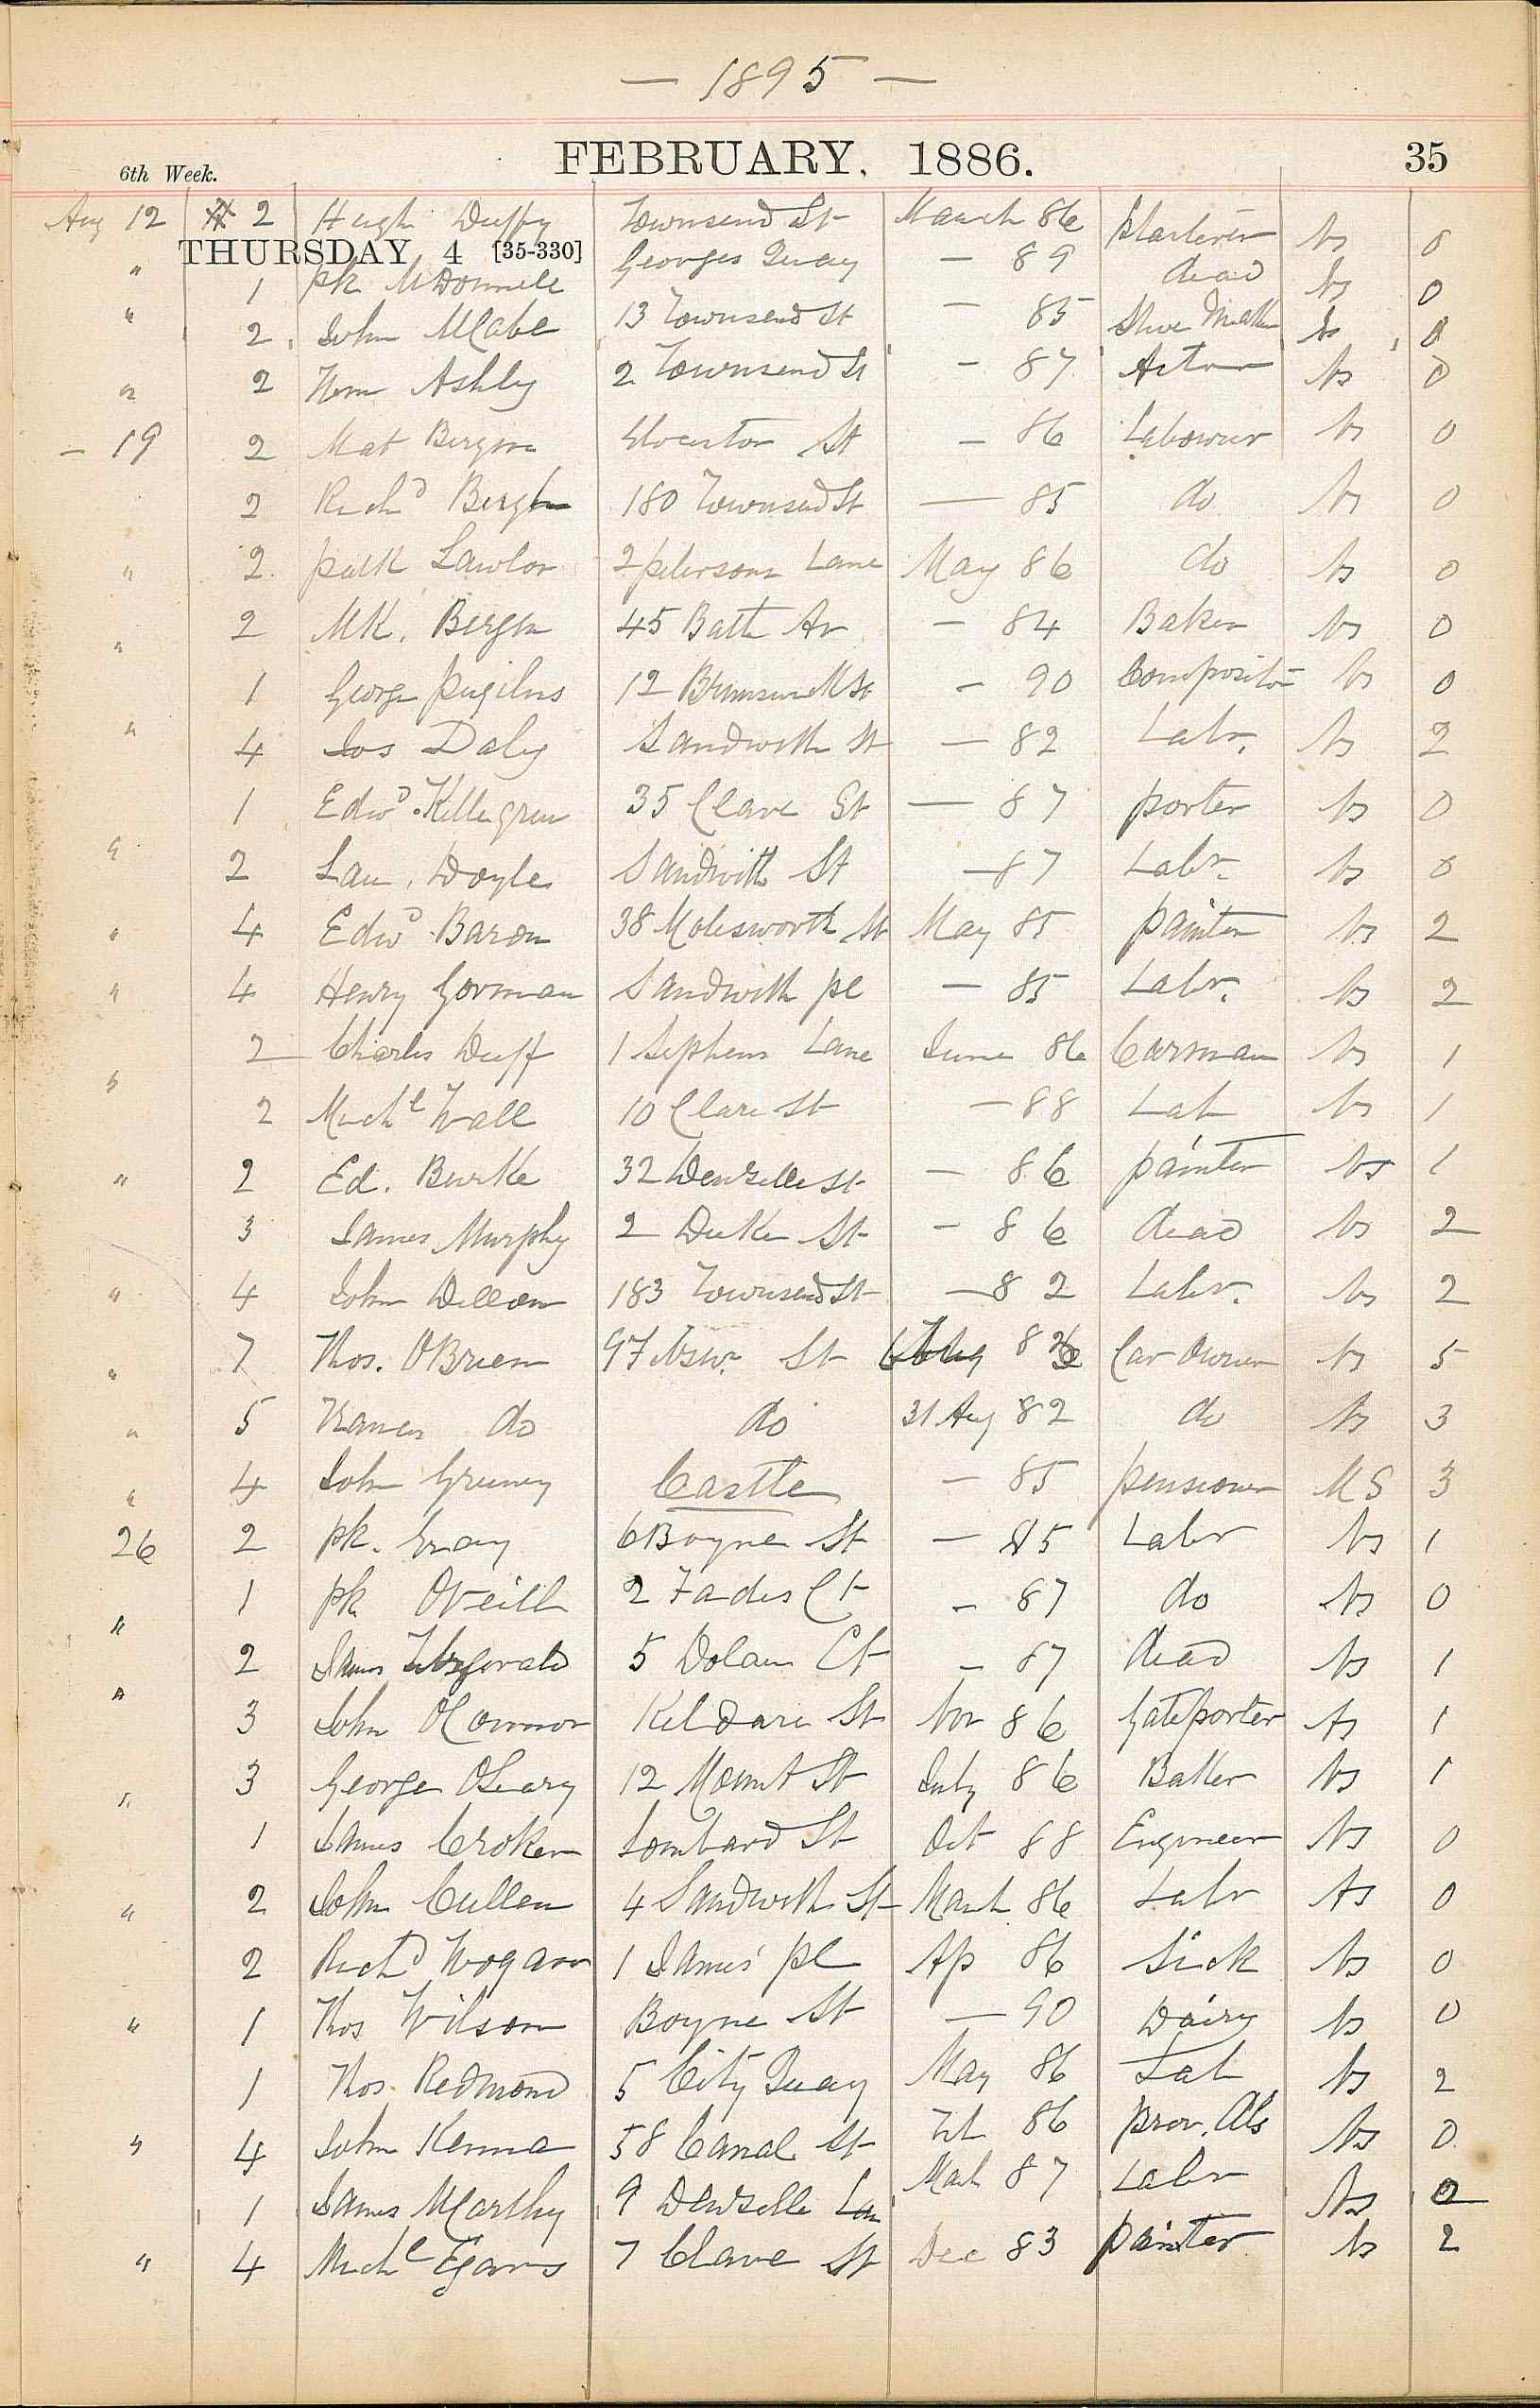 — 1895 —
6th Week. FEBRUARY, 1886. 35
Aug 12 2 Hugh Duffy Townsend St March 86 plasterer Ns 0
THURSDAY 4 [35-330]
" 1 Pk McDonnell Georges Quay — 89 dead Ns 0
" 2 John McCabe 13 Townsend St — 85 Shoe Ns 0
" 2 Wm Ashly 2 Townsend St — 87 Actor Ns 0
— 19 2 Mat Bergin Glocester St — 86 Labourer Ns 0
2 Richd Bergin 180 Townsend St — 85 do Ns 0
" 2 Patk Lawlor 2 petersons Lane May 86 do Ns 0
" 2 Mk. Bergin 45 Bath Av — 84 Baker Ns 0
1 George 12 Brunswick St — 90 Compositor Ns 0
" 4 Jos Daly Sandwith St — 82 Labr. Ns 2
1 Edwd. 35 Clare St — 87 porter Ns 0
" 2 Lau. Doyle Sandwith St — 87 Labr. Ns 0
" 4 Edwd Baron 38 Molesworth St May 85 painter Ns 2
" 4 Henry Gorman Sandwith pl — 85 Labr. Ns 2
2 Charles Duff 1 Stephens Lane June 86 Carman Ns 1
" 2 Michl Wall 10 Clare St — 88 Lab Ns 1
" 2 Ed. Burke 32 Denzille St — 86 painter Ns 1
3 James Murphy 2 Duke St — 86 dead Ns 2
" 4 John Dillon 183 Townsend St — 82 Labr. Ns 2
" 7 Thos. OBrien 97 St 8 Car Owner Ns 5
" 5 Frances do do 31 Aug 82 do Ns 3
" 4 John Greeney Castle — 85 pensioner MS 3
26 2 pk. Gray 6 Boyne St — 85 Labr Ns 1
" 1 pk ONeill 2 Fades Ct — 87 do Ns 0
2 James Fitzgerald 5 Dolan Ct — 87 dead Ns 1
" 3 John OConnor Kildare St Nov 86 Gateporter Ns 1
" 3 George OLeary 12 Mount St July 86 Baker Ns 1
1 James Croker Lombard St Oct 88 Engineer Ns 0
" 2 John Cullen 4 Sandwith St March 86 Labr Ns 0
2 Richd Hogan 1 James' pl Ap 86 Sick Ns 0
" 1 Thos Wilson Boyne St — 90 Dairy Ns 0
1 Thos. Redmond 5 City Quay May 86 Lab Ns 2
" 4 John Kenna 58 Canal St Feb 86 prov. Ns 0
1 James McCarthy 9 Denzille Lan March 87 Labr Ns
" 4 Michl Egan 7 Clare St Dec 83 painter Ns 2